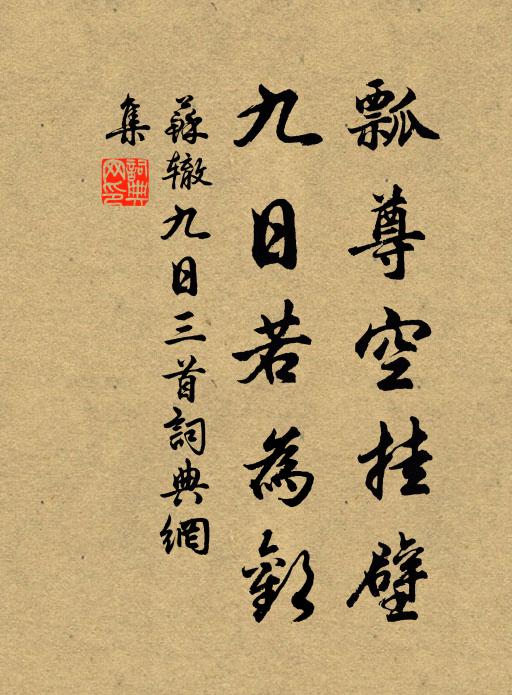 瓢尊空挂壁
九日若為歡
蘇轍九日三首詞典網
集
詞典網印